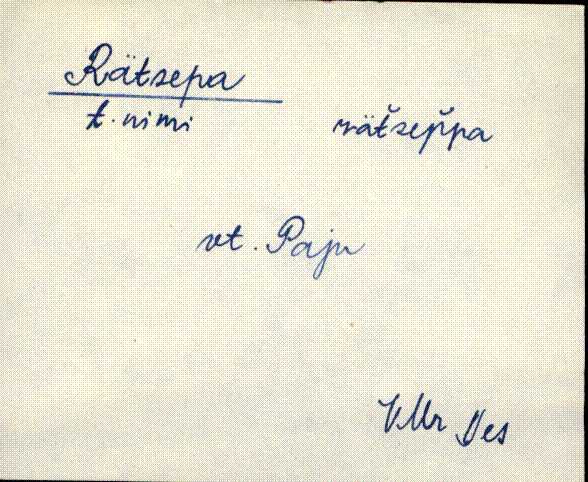 Rätsepa
t. nimi
rätšep̌pa
vt. Paju
VMr Ves